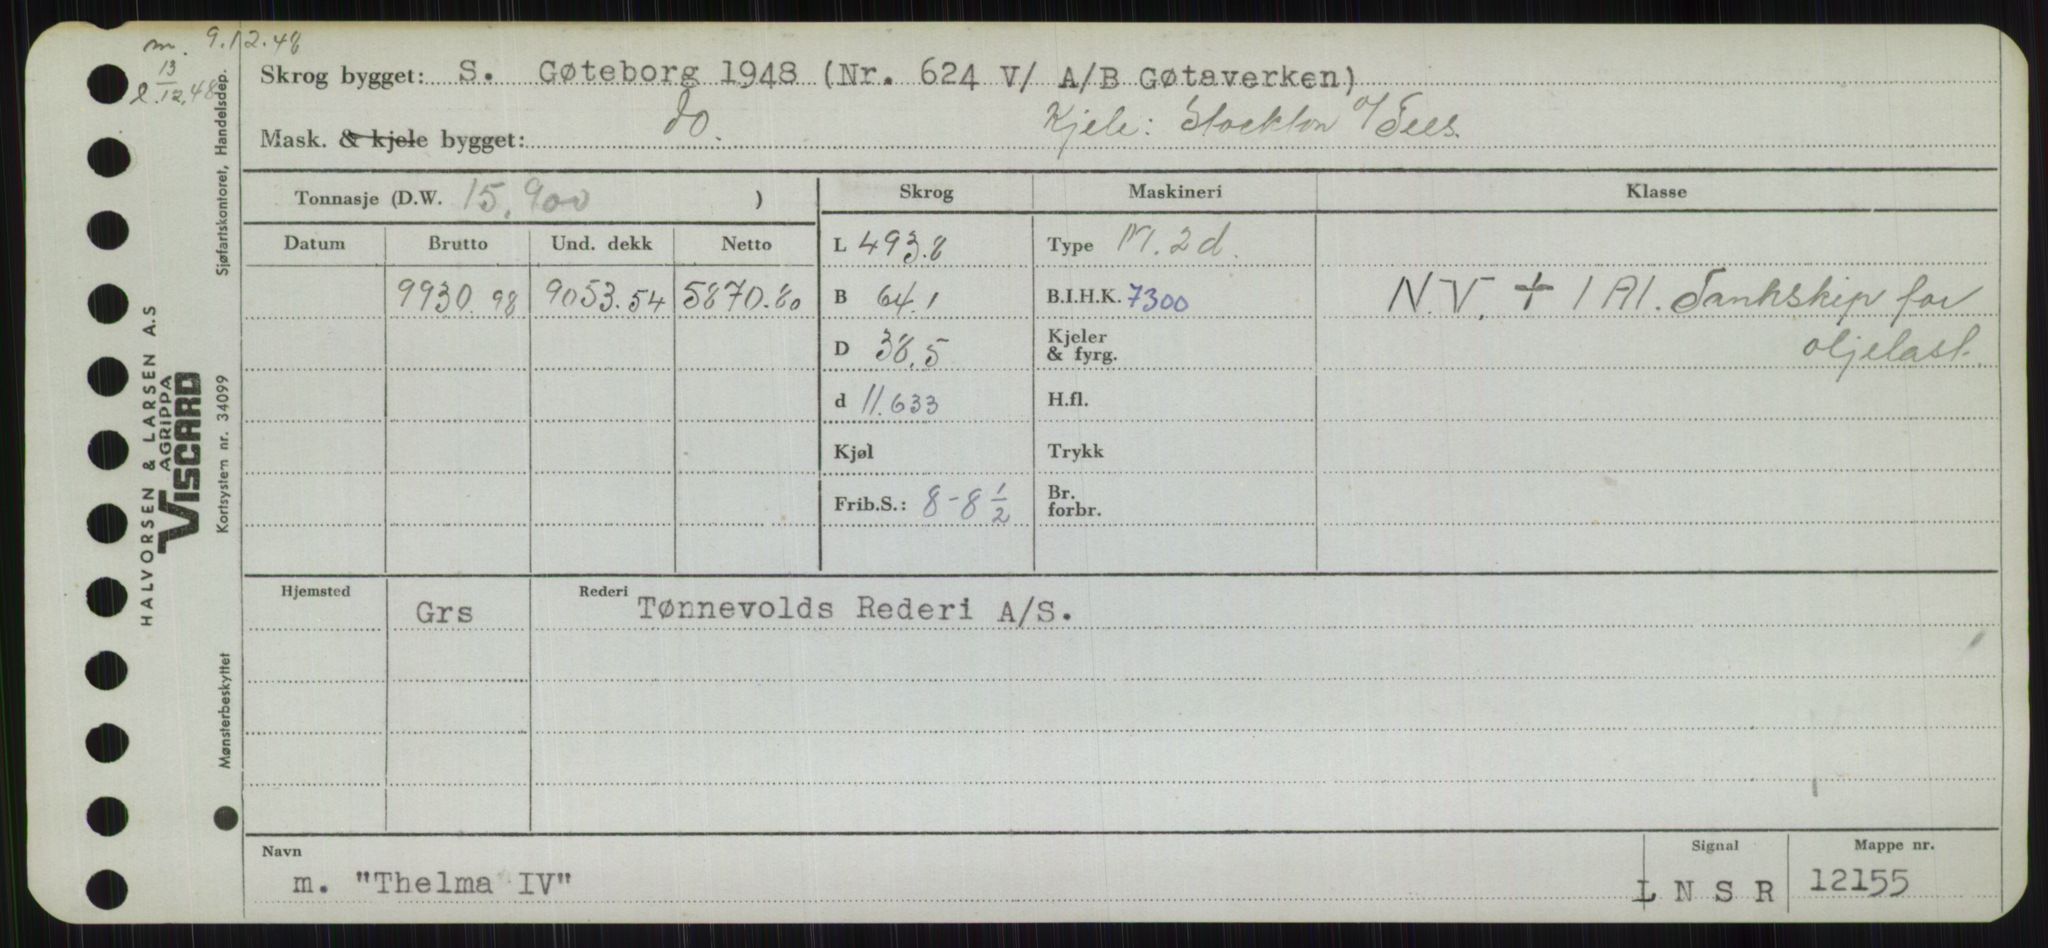 m. 9.12.48
l. 13/12.48
Skrog bygget: S. Gøteborg 1948 (Nr. 624 V/ A/B Gøtaverken)
Mask. & kjele bygget: do. Kjele: Stockton o/Tees.
Tonnasje (D.W. 15,900 )
Skrog Maskineri Klasse
Datum Brutto Und. dekk Netto
L 493.8 Type M. 2 d.
9930.98 9053.54 5870.80
B 64.1 B.I.H.K. 7300 N.V. + 1 A1. Tankskip for
oljelast.
D 38.5 Kjeler
& fyrg.
d 11.633 H.fl.
Kjøl Trykk
Frib.S.: 8-8 1/2 Br.
forbr.
Hjemsted Rederi
Grs Tønnevolds Rederi A/S.
Navn Signal Mappe nr.
m. "Thelma IV" L N S R 12155
HALVORSEN & LARSEN A.S
AGRIPPA
VISCARD
Sjøfartskontoret, Handelsdep.
Kortsystem nr. 34099
Mønsterbeskyttet